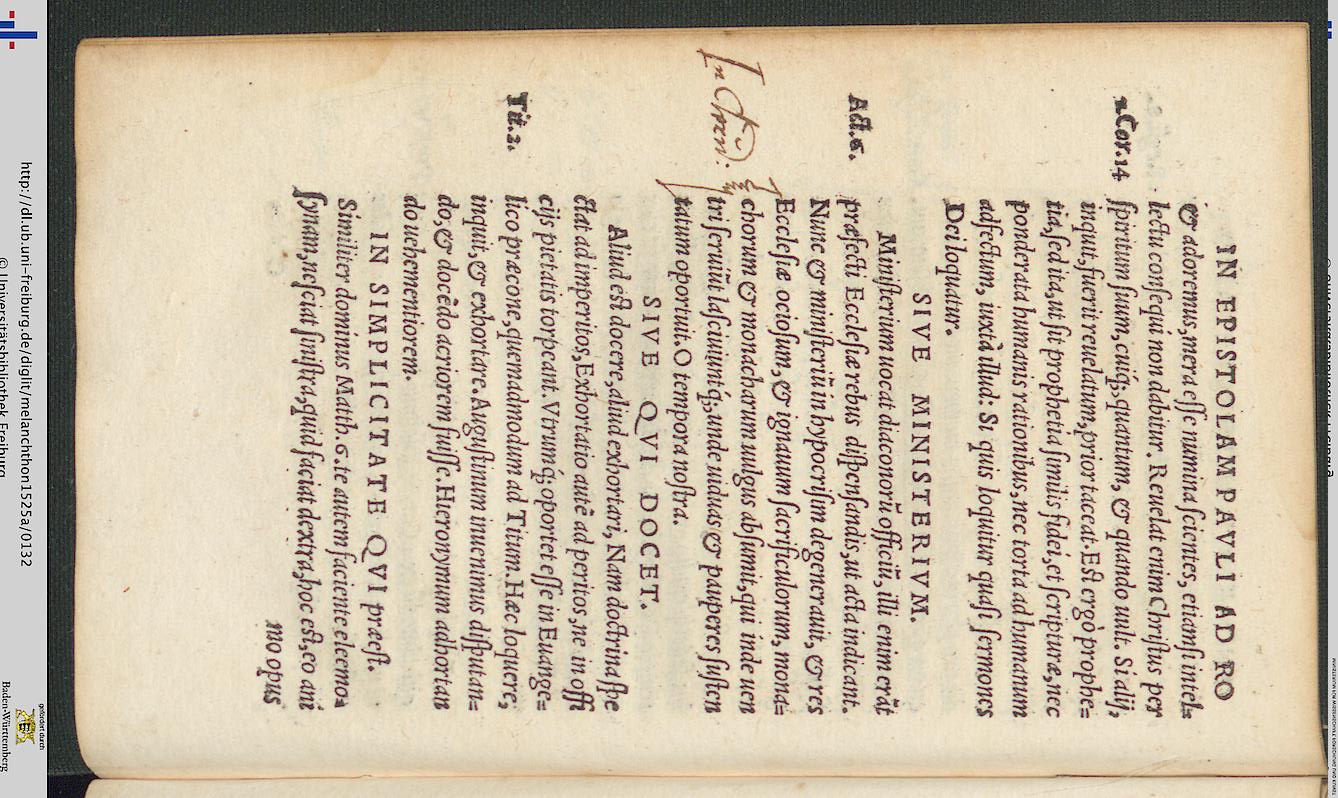 IN EPISTOLAM PAVLI AD RO
& adoremus, mera esse numina scientes, etiamsi intel=
lectu consequi non dabitur. Reuelat enim Christus per
1. Cor. 14
spiritum suum, cuiq;, quantum, & quando uult. Si alij,
inquit, fuerit reuelatum, prior taceat. Est ergo prophe=
tia, sed ita, ut sit prophetia similis fidei, et scripturæ, nec
ponderata humanis rationibus, nec torta ad humanum
adfectum, iuxtà illud: Si quis loquitur quasi sermones
Dei loquatur.
SIVE MINISTERIVM.
Ministerium uocat diaconorũ officiũ, illi enim erãt
Act. 6.
præfecti Ecclesiæ rebus dispensandis, ut acta indicant.
Nunc & ministeriũ in hypocrisim degenerauit, & res
Ecclesiæ ociosum, & ignauum sacrificulorum, mona=
chorum & monacharum uulgus absumit, qui inde uen
tri seruiũt lasciuiunt q;, unde uiduas & pauperes susten
tatum oportuit. O tempora nostra.
SIVE QVI DOCET.
Aliud est docere, aliud exhortari, Nam doctrina spe
ctat ad imperitos, Exhortatio autẽ ad peritos, ne in offi
cijs pietatis torpeant. Vtrumq; oportet esse in Euange=
Tit. 2.
lico præcone, quemadmodum ad Titum. Hæc loquere,
inquit, & exhortare. Augustinum inuenimus disputan=
do, & docẽdo acriorem fuisse. Hieronymum adhortan
do uehementiorem.
IN SIMPLICITATE QVI præest.
Similiter dominus Math. 6. te autem faciente eleemo=
synam, ne sciat sinistra, quid faciat dextra, hoc est, eo ani
mo opus
http://dl.ub.uni-freiburg.de/diglit/melanchthon1525a/0132
© Universitätsbibliothek Freiburg
gefördert durch
Baden-Württemberg